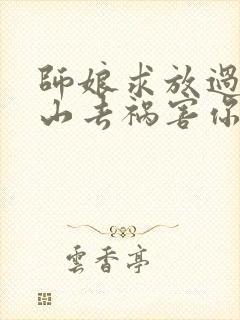 師娘求放過
山去禍害你
雲香亭